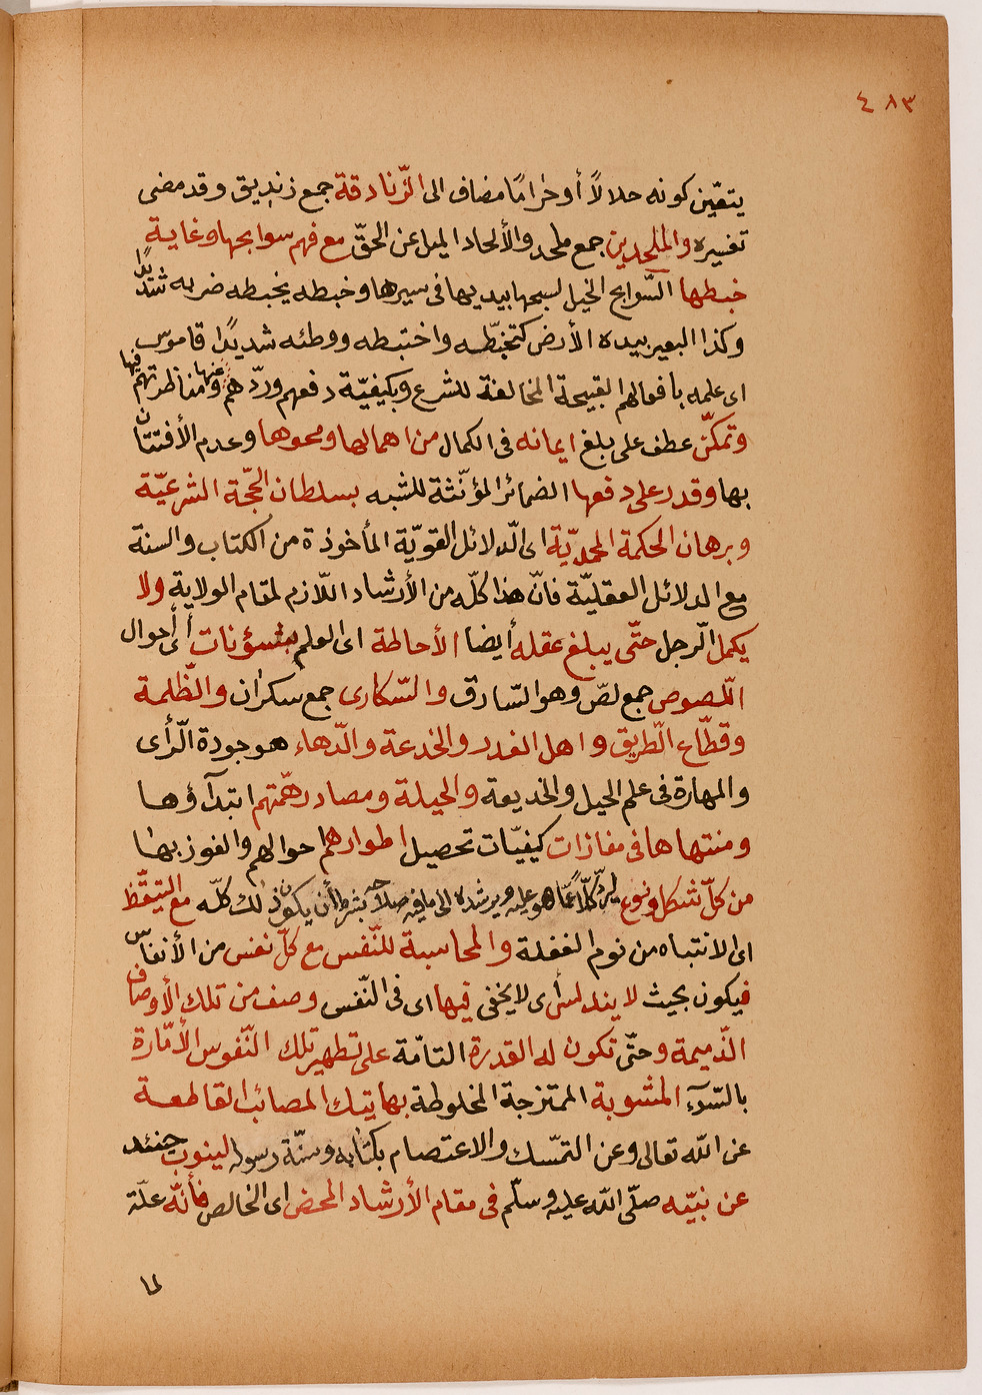 ٤٨٣
يتعّين كونه حلالاً أو حرامًا مضاف الى الزّنادقة جمع زنديق وقد مضى
تفسيره والملحدين جمع ملحد والألحاد الميل عن الحقّ مع فهم سوابحها وغاية
خبطها السّوابح الخيل لسبحها بيديها فى سيرها وخبطه يخبطه ضربه شديدًا
وكذا البعير بيده الأرض كتخبّطه واختبطه ووطئه شديدًا قاموس
اى علمه بافعالهم القبيحة المخالفة للشرع وبكيفيّة دفعهم وردّهم عنها ومناظرتهم فيها
وتمكّن عطف على بلغ ايمانه فى الكمال من اهمالها ومحوها وعدم الأفتتان
بها وقدر على دفعها الضمائر المؤنّثة للشبه بسلطان الحجّة الشرعيّة
وبرهان الحكمة المحمديّة اى الدلائل القويّة المأخوذة من الكتاب والسنة
مع الدلائل العقليّة فانّ هذا كلّه من الأرشاد اللّازم لمقام الولاية ولا
يكمل الرجل حتّى يبلغ عقله أيضا الأحاطة اى العلم بشؤنات أى أحوال
اللّصوص جمع لصّ وهو السّارق والسّكارى جمع سكران والظّلمة
وقطّاع الطّريق واهل الغدر والخدعة والدّهاء هو جودة الرّأى
والمهارة فى علم الحيل والخديعة والحيلة ومصادر همّتهم ابتدآؤها
ومنتهاها فى مفازات كيفيّات تحصيل اطوارهم احوالهم والفوز بها
من كلّ شكل ونوع ليردّ كلّاً عمّا هو عليه ويرشده الى ما فيه صلاحه بشرط أن يكون ذلك كلّه مع التيقّظ
اى الانتباه من نوم الغفلة والمحاسبة للنّفس مع كلّ نفس من الأنفاس
فيكون بحيث لا يندلس أى لا يخفى فيها اى فى النّفس وصف من تلك الأوصاف
الذّميمة وحتّى تكون له القدرة التامّة على تطهير تلك النّفوس الأمّارة
بالسّوء المشوبة الممتزجة المخلوطة بهاتيك المصائب القاطعة
عن اللّه تعالى وعن التمسّك والاعتصام بكتابه وسنّة رسوله لينوب حينئد
عن نبيّه صلّى اللّه عليه وسلّم فى مقام الأرشاد المحض اى الخالص فأنّه علّة
لما